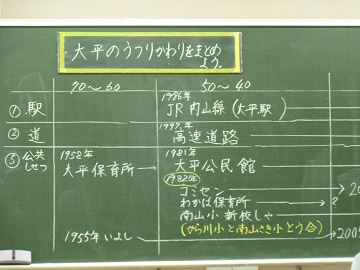 大平のうつりかわりをまとめ
よう。
70〜60
50〜40
①駅
1986年
JR内山線(大平駅)
②道
1997年
高速道路
③公共
しせつ
1958年
大平保育所
1981年
大平公民館
1982年
コミセン
20
わかば保育所
?
南山小 新校しゃ
(から川小と南山さき小とう合)
1955年 いよし
2005